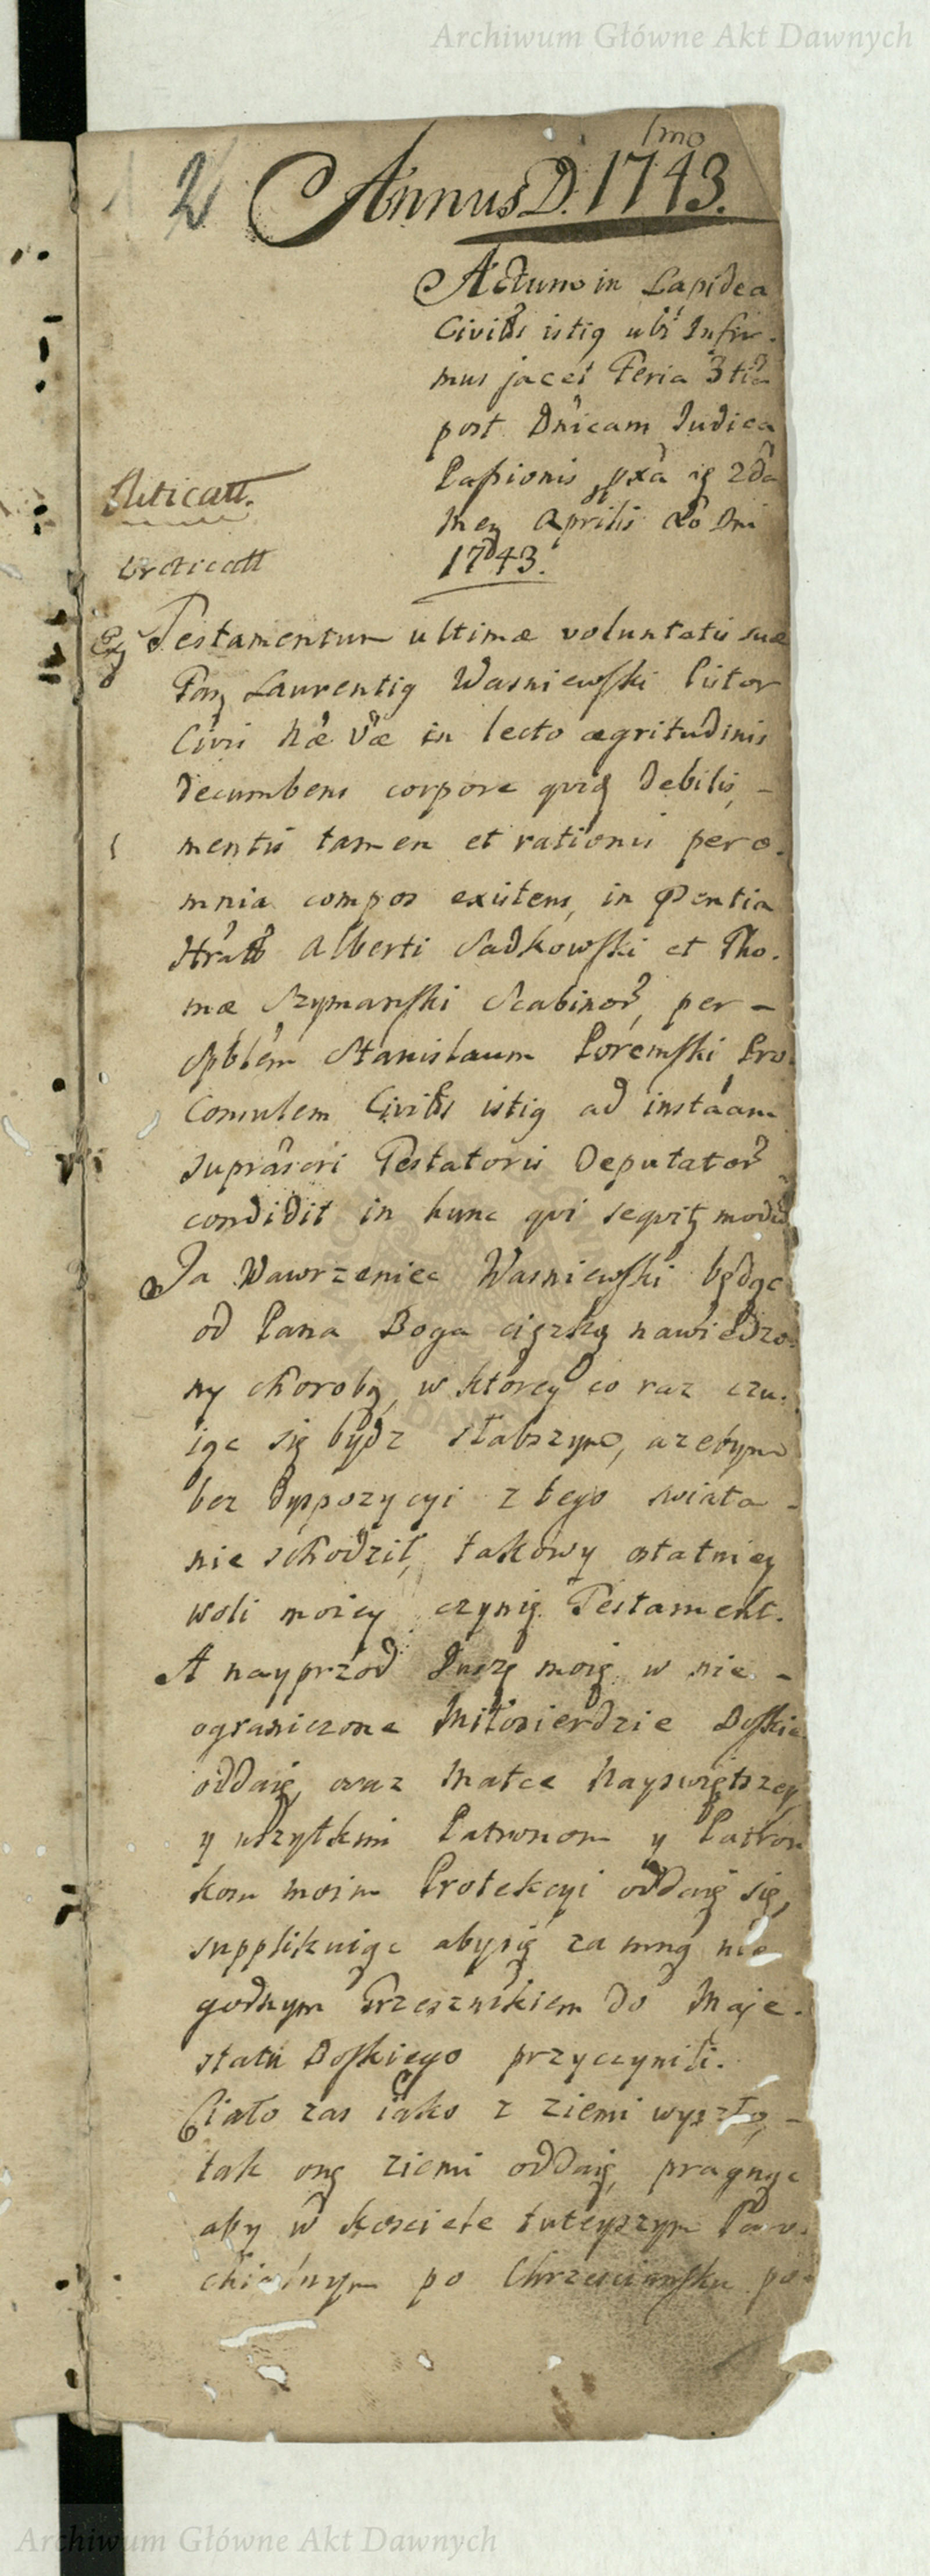 Archiwum Główne Akt Dawnych
1mo
2
Annus D. 1743.
Actum in Lapidea
Civilis istiq ubi Infir-
mus jacet Feria 3tia
post Dnicam Judica
Passionis, pxa iq 2da
Men Aprilis Ao Dni
1743.
Testamentum ultimæ voluntatis suæ
Fam Laurentiq Wasniewski Pistor
Civis hæ væ in lecto ægritudinis
decumbens corpore qviq debilis, -
mentis tamen et rationis per o-
mnia compos existens, in Pntia
Alberti Sadkowski et Tho-
mæ Szymanski Scabinor, per -
Spblem Stanislaum Poremski Pro
Consulem Civilis istiq ad instaam
suprascri Testatoris Deputator
condidit in hunc qvi seqvitz modū
Ja Wawrzeniec Wasniewski będąc
od Pana Boga cięzką nawiedzo-
ny chorobą, w ktorey co raz czu-
iąc się bydz słabszym, azebym
bez dyspozycyi z tego swiata -
nie schodził, takowy ostatniey
woli moiey czynię Testament.
A nayprzod Duszę moię w nie -
ograniczone Miłosierdzie Boskie
oddaię, oraz Matce Nayswiętszey
y wszytkim Patronom y Patron
kom moim Protekcyi oddaię się,
supplikuiąc abysię za mną nie
godnym Grzesznikiem do Maje-
statu Boskiego przyczynili.
Ciało zas iako z ziemi wyszło, -
tak one ziemi oddaię, pragnąc
aby w kosciele tuteyszym Paro-
chialnym po Chrzesciansku po-
Archiwum Główne Akt Dawnych